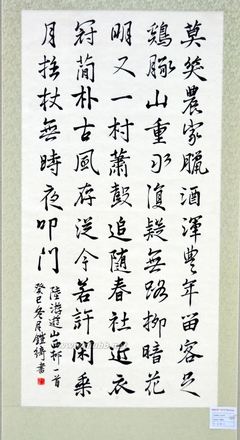 莫笑農家臘酒渾豐年留客足
雞豚山重水復疑無路柳暗花
明又一村蕭鼓追隨春社近衣
冠簡朴古風存從今若許閑乘
月拄杖無時夜叩門
陸游遊山西邨一首
癸巳冬月